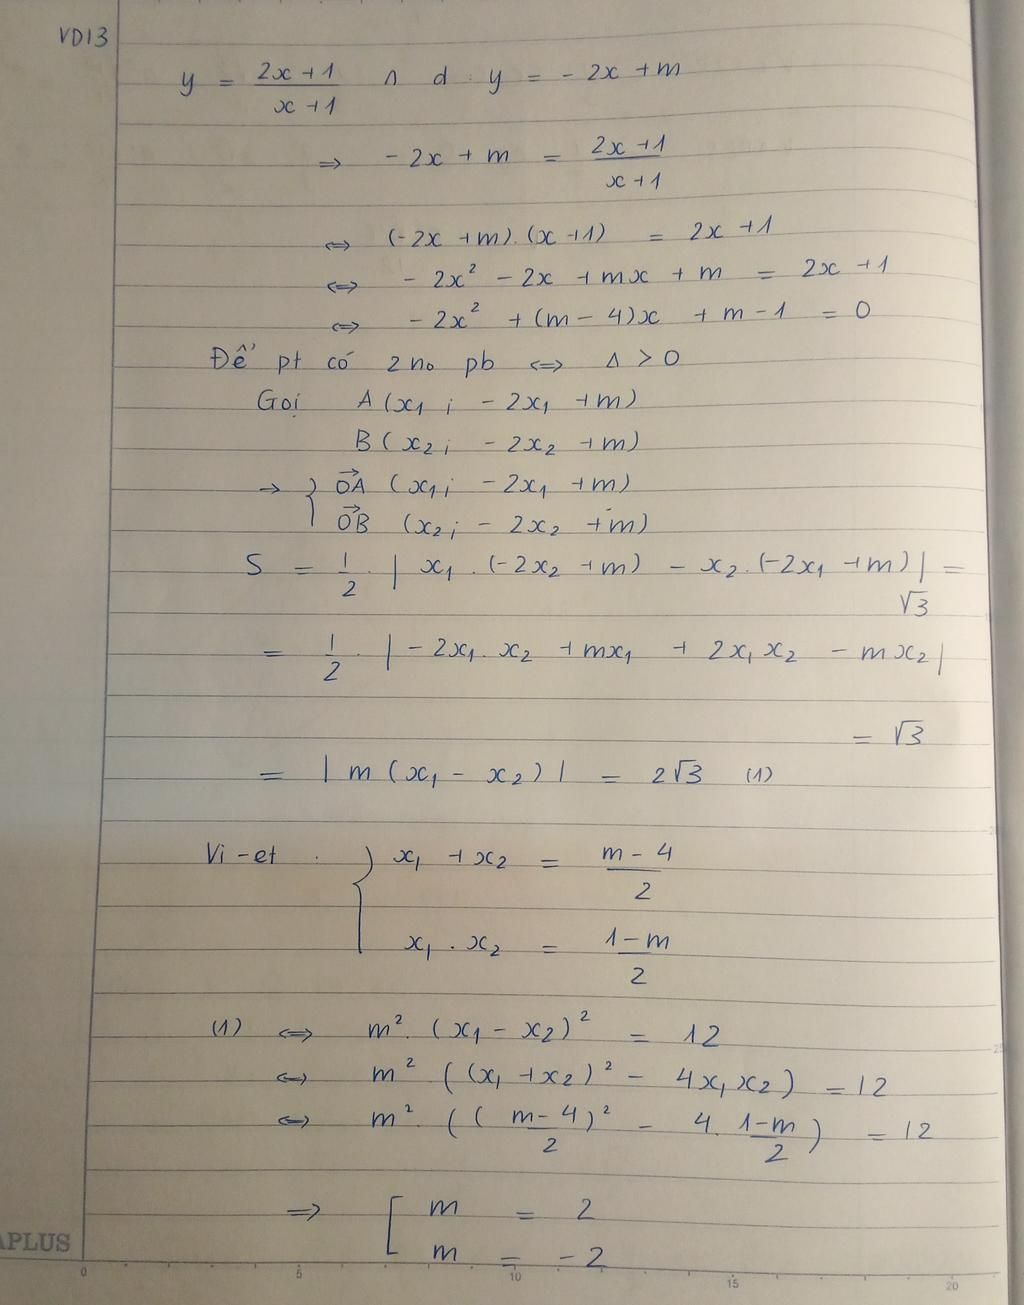 VD13
y = \frac{2x+1}{x+1} ∩ d : y = -2x + m
⇒ -2x + m = \frac{2x+1}{x+1}
⇔ (-2x + m).(x+1) = 2x + 1
⇔ -2x² - 2x + mx + m = 2x + 1
⇔ -2x² + (m-4)x + m - 1 = 0
Để pt có 2 no pb ⇔ Δ > 0
Gọi A(x₁; -2x₁ + m)
B(x₂; -2x₂ + m)
→ { \vec{OA} (x₁; -2x₁ + m)
\vec{OB} (x₂; -2x₂ + m)
S = \frac{1}{2} . | x₁.(-2x₂ + m) - x₂.(-2x₁ + m) | =
√3
= \frac{1}{2} . | -2x₁.x₂ + mx₁ + 2x₁x₂ - mx₂ |
= √3
= | m(x₁ - x₂) | = 2√3 (1)
Vi-et . { x₁ + x₂ = \frac{m-4}{2}
x₁ . x₂ = \frac{1-m}{2}
(1) ⇔ m².(x₁ - x₂)² = 12
⇔ m² ((x₁ + x₂)² - 4x₁x₂) = 12
⇔ m².((\frac{m-4}{2})² - 4.\frac{1-m}{2}) = 12
⇒ [ m = 2
m = -2
APLUS
0 5 10 15 20